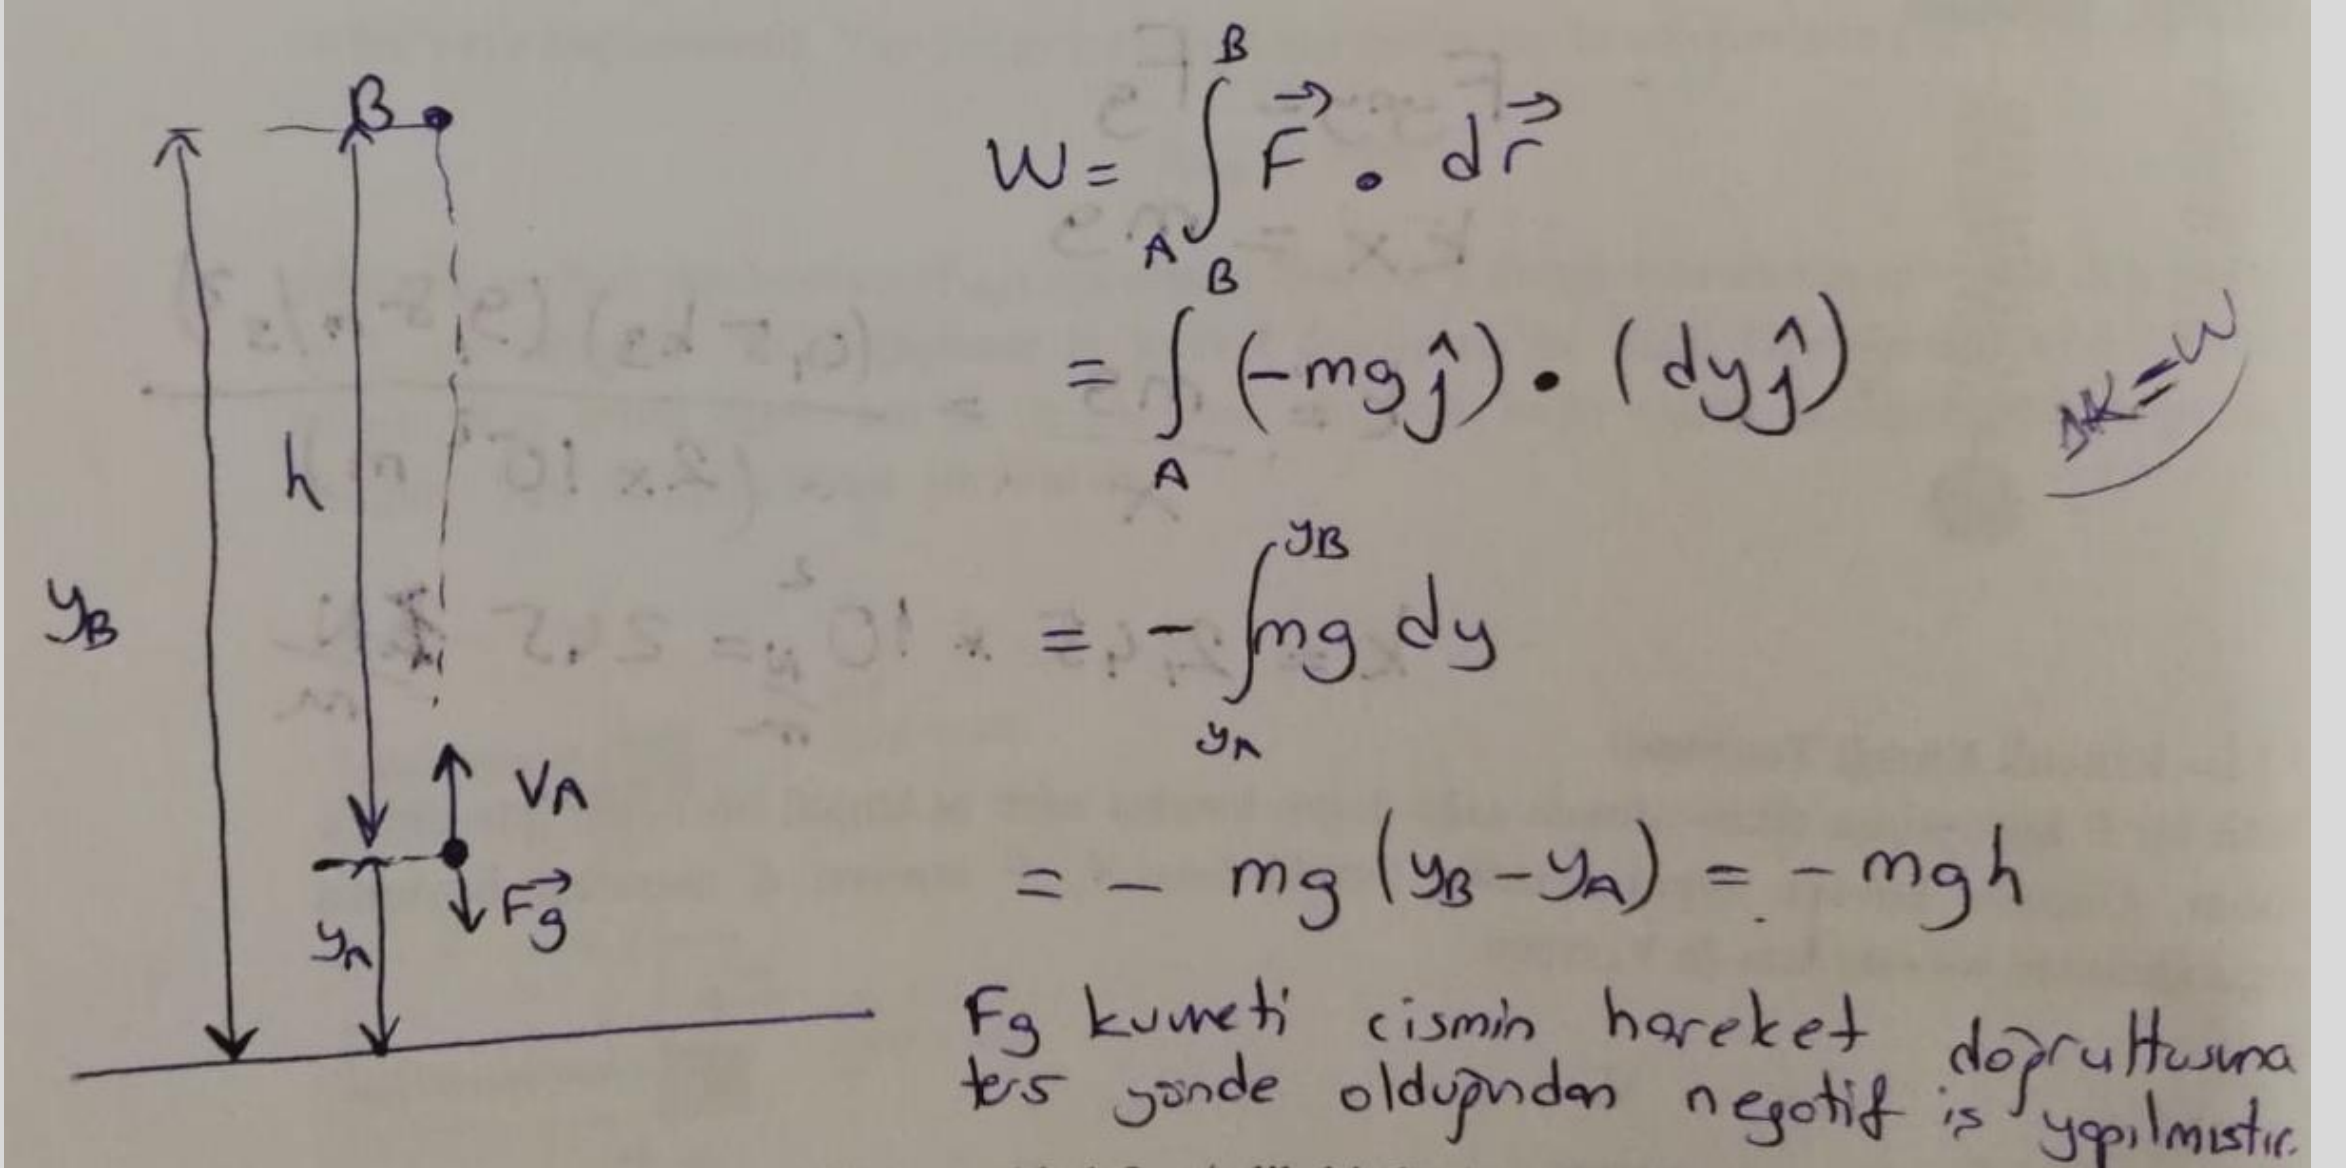 B
h
y_B
V_A
\vec{F_g}
y_A
W = \int_A^B \vec{F} \cdot d\vec{r}
= \int_A^B (-mg\hat{j}) \cdot (dy\hat{j})
ΔK = W
= - \int_{y_A}^{y_B} mg dy
= - mg (y_B - y_A) = - mgh
Fg kuvveti cismin hareket doğrultusuna
ters yönde olduğundan negatif iş yapılmıştır.